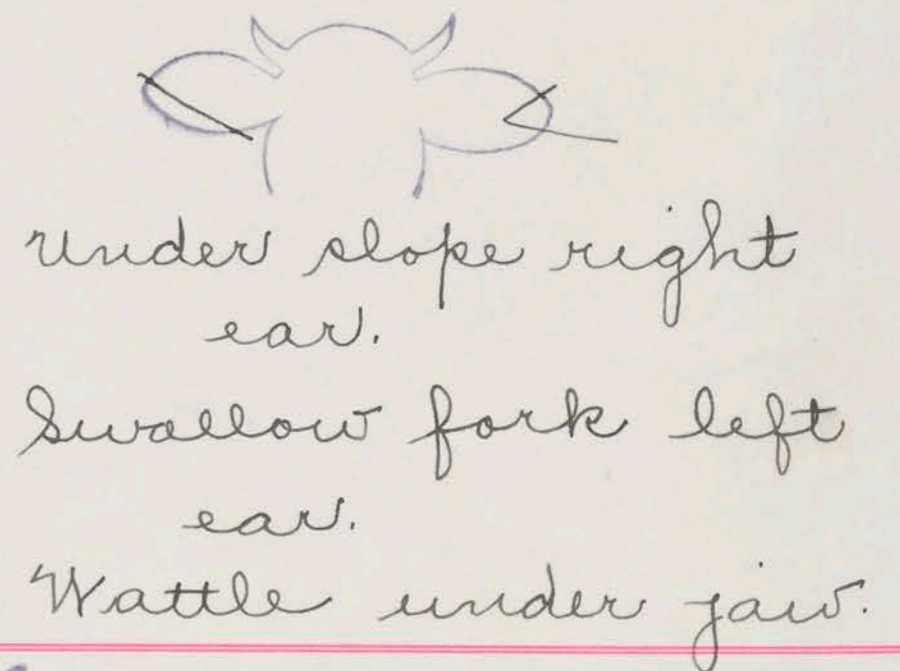 Under slope right
ear.
Swallow fork left
ear.
Wattle under jaw.